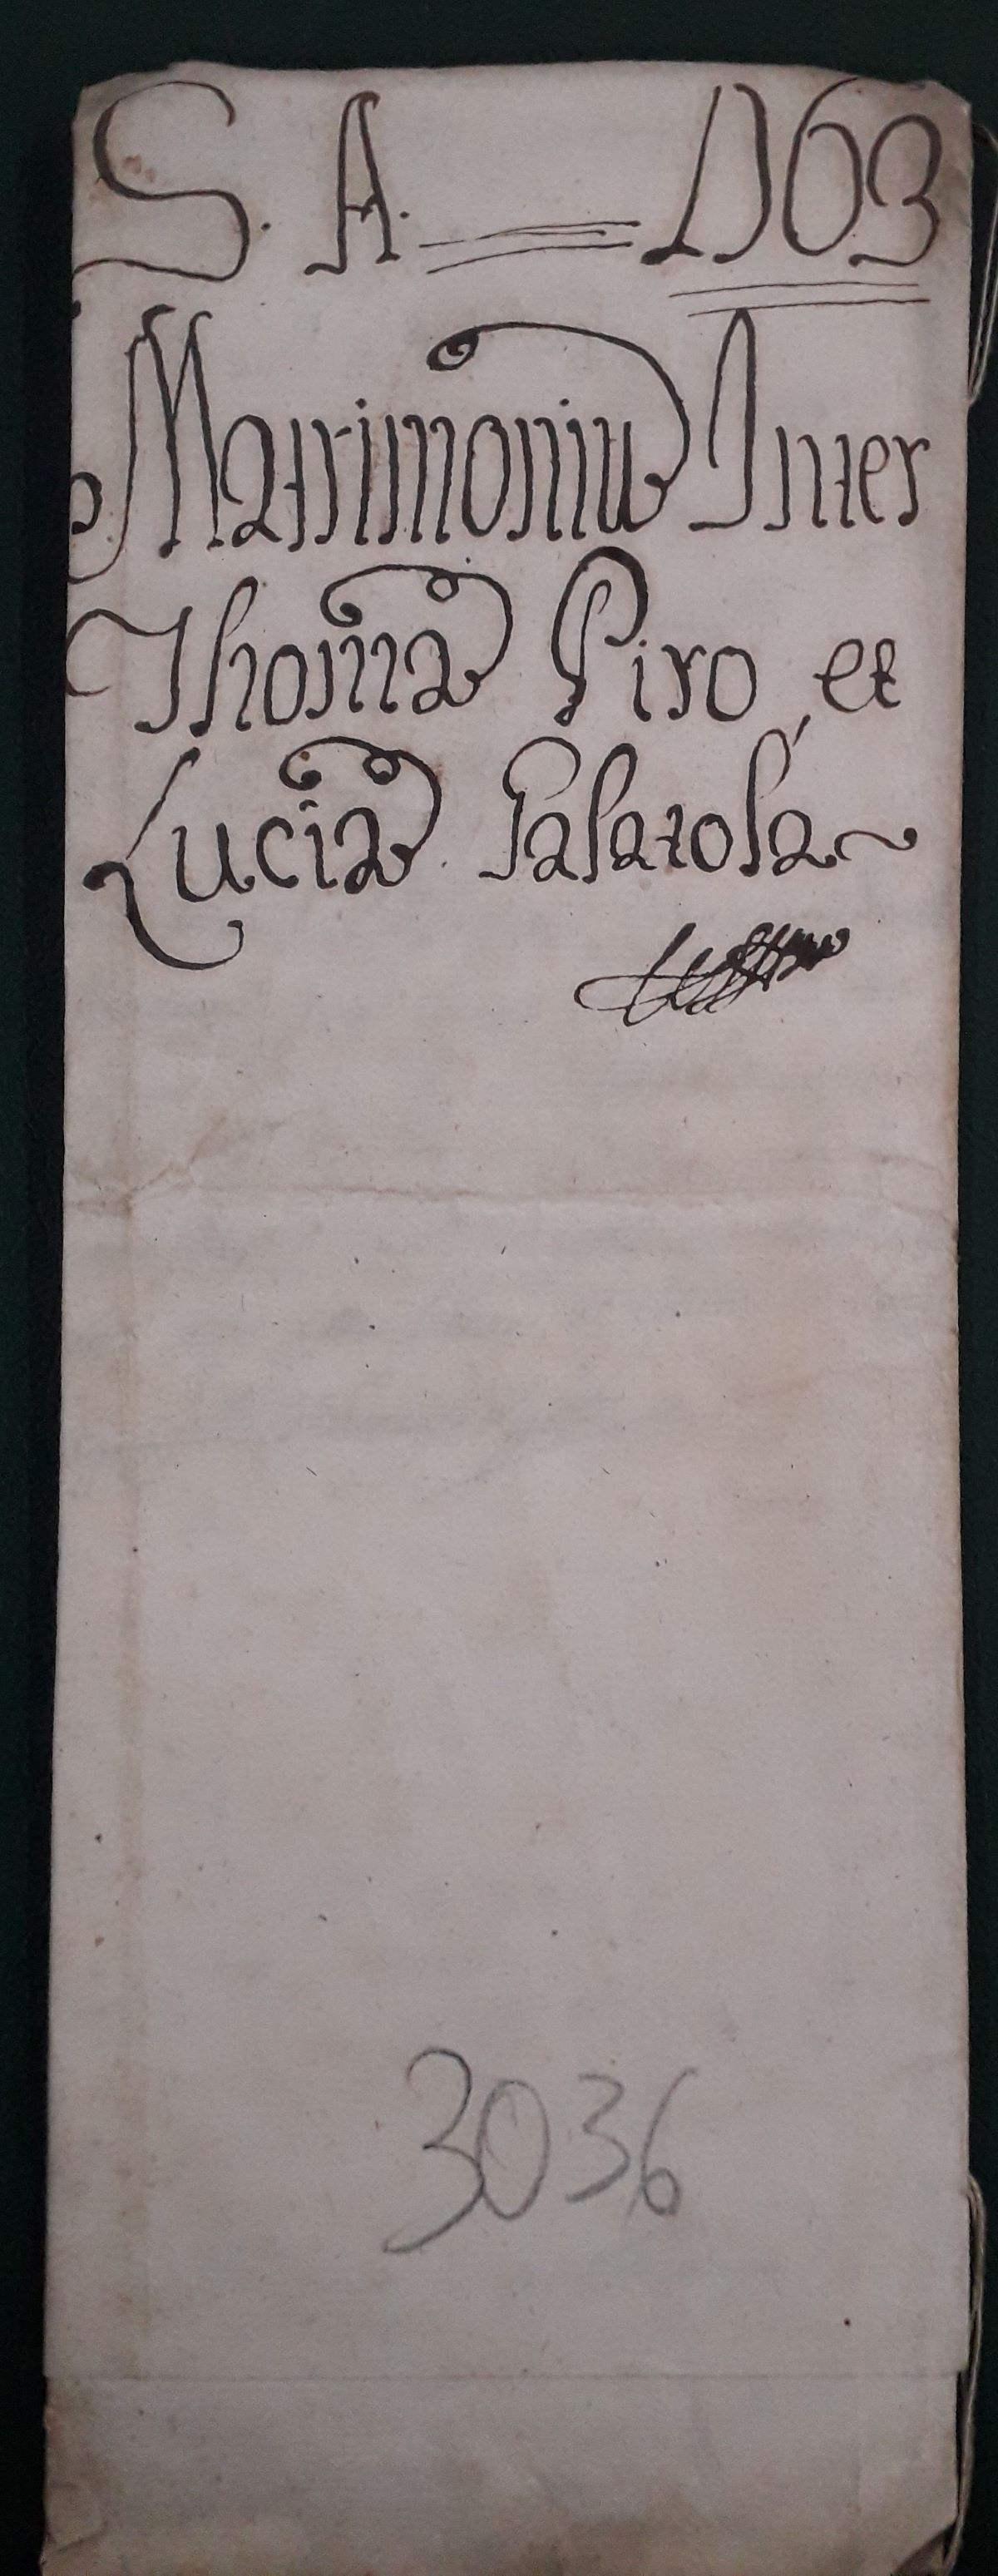 S. A. 1763
Matrimoniũ Inter
Thomã Piro, et
Luciã Palatola
3036